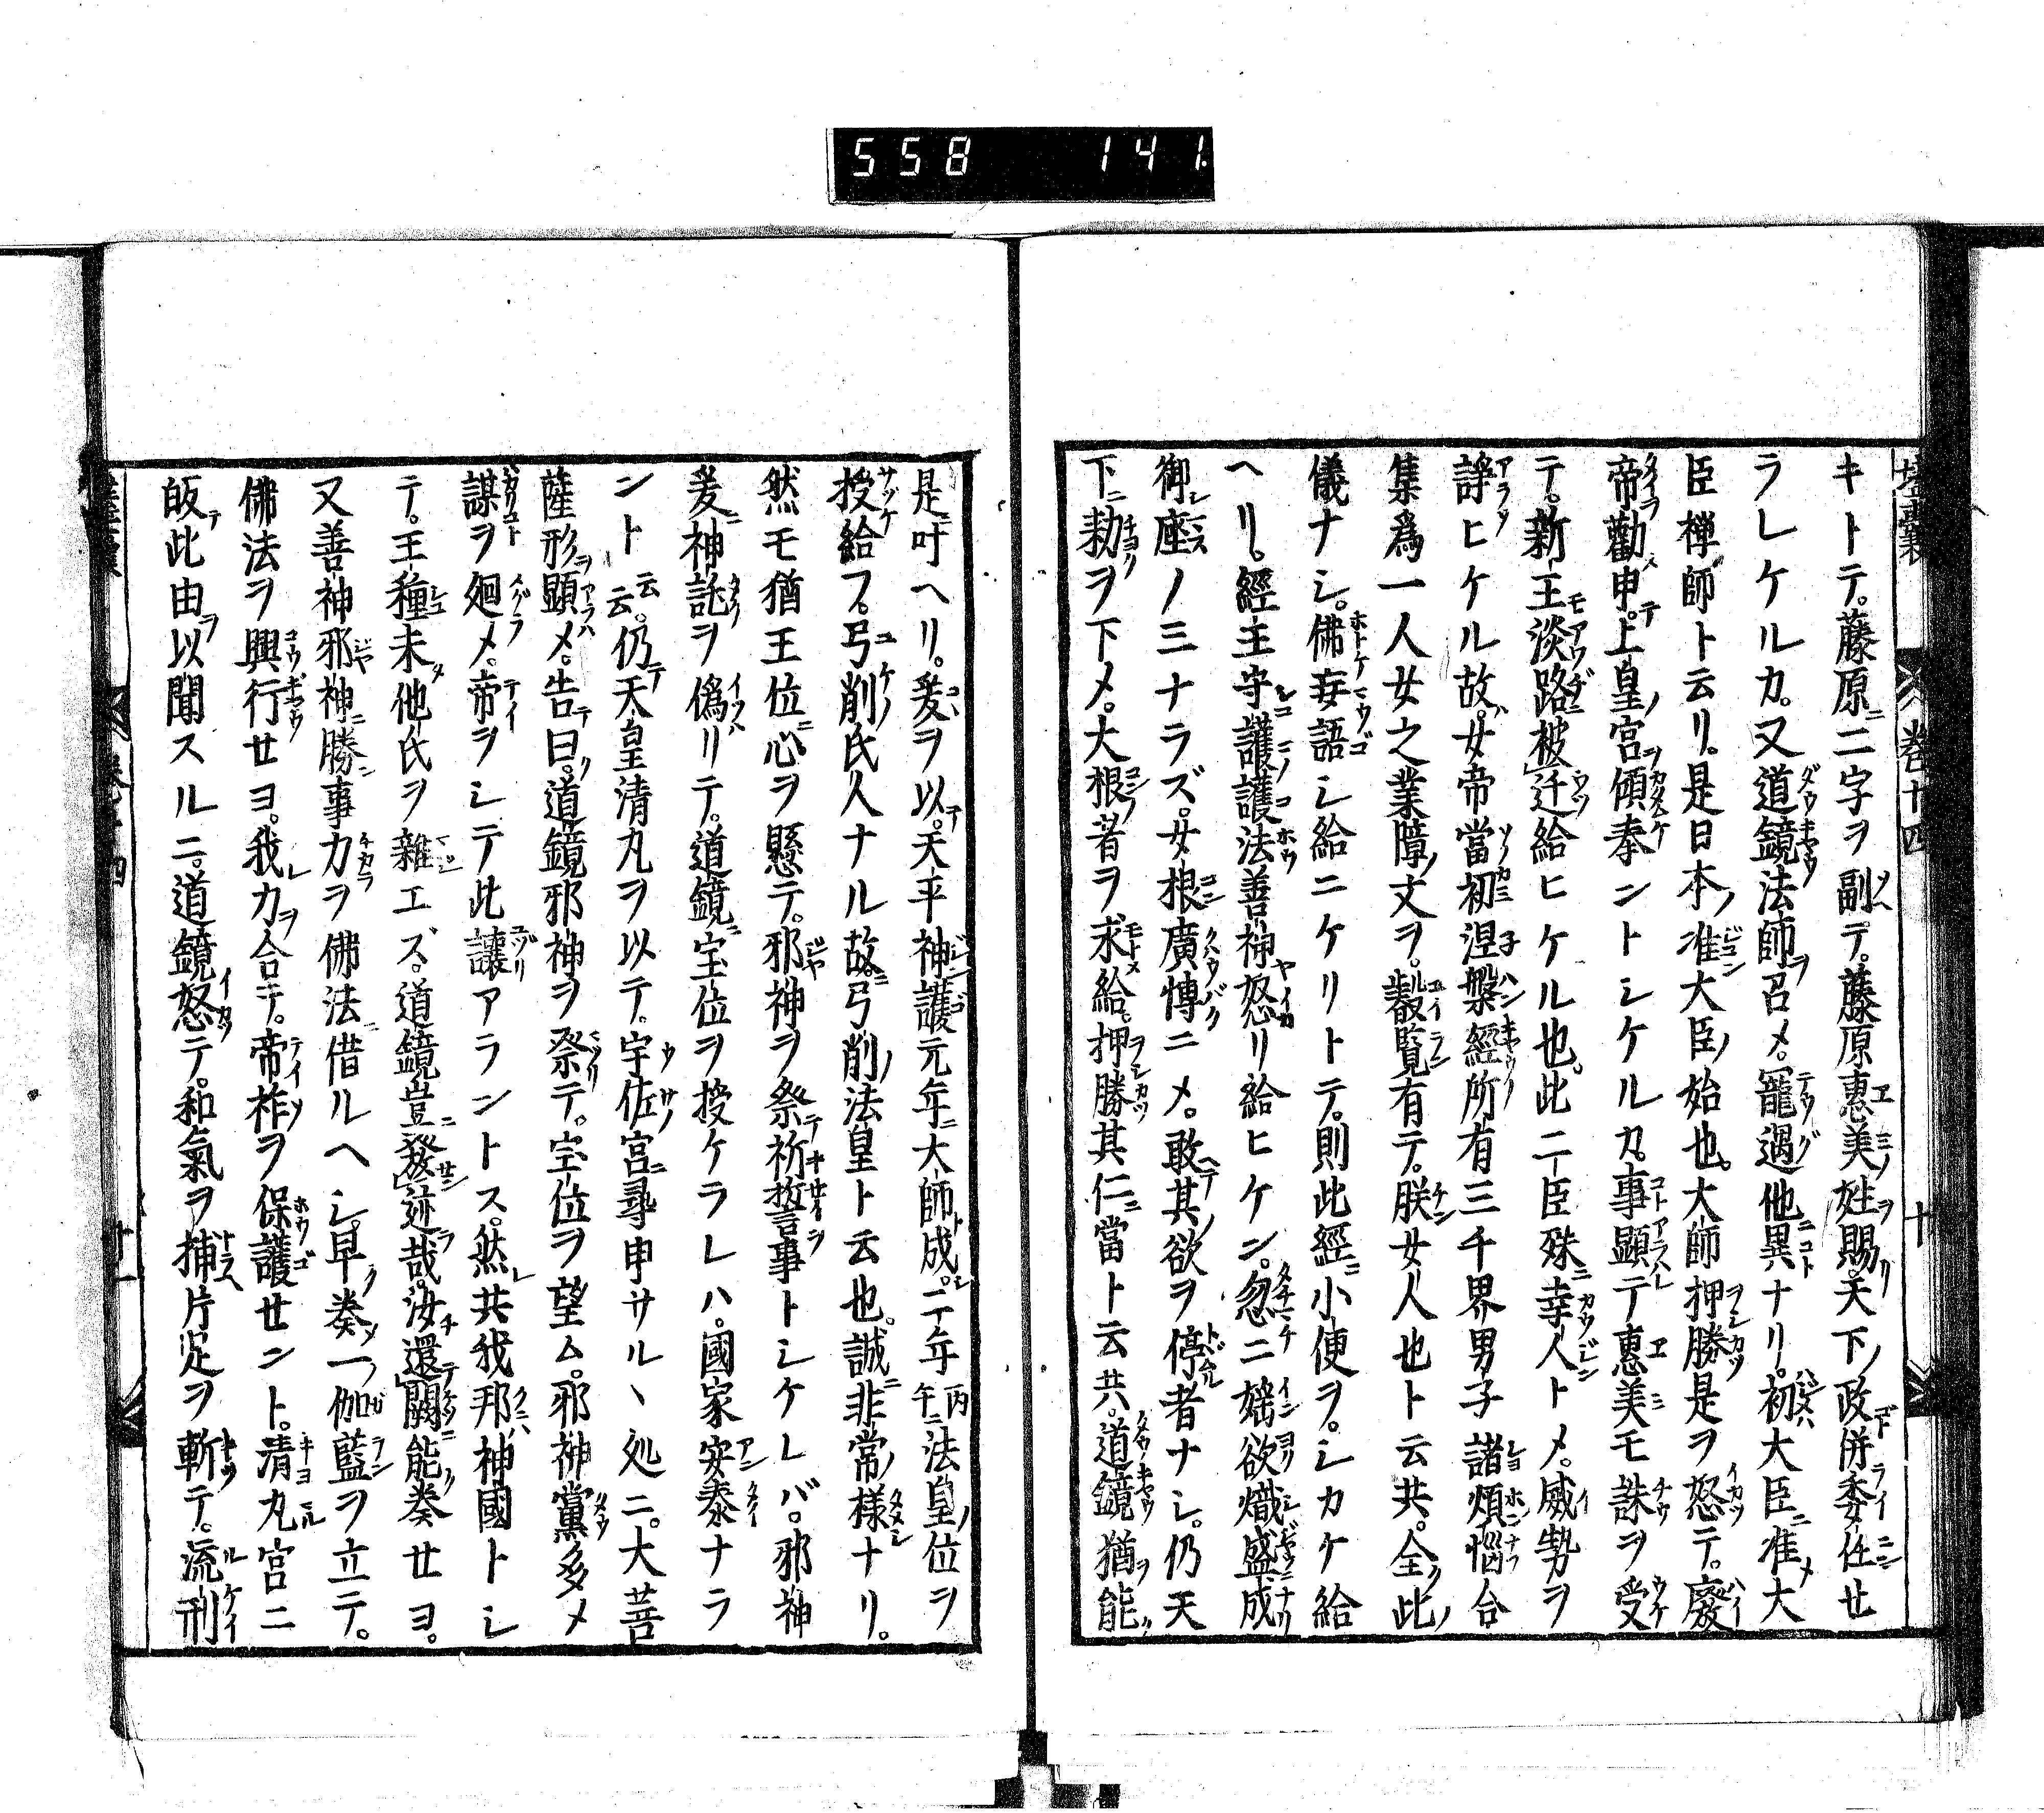 558 141.
壒囊 巻十四 十
キトテ。藤原ニ二字ヲ副テ。藤原惠美ノ姓ヲ賜リ。天下ノ政併委任セ
ラレケルカ。又道鏡法師ヲ召メ。寵遇他ニ異ナリ。初ハ大臣ニ准メ大
臣禅師ト云リ。是日本ノ准大臣ノ始也。大師押勝是ヲ怒テ。廢
帝ヲ勸メ申テ。上皇ノ宮ヲ傾奉ントシケルカ。事顯レテ惠美モ誅ヲ受
テ。新王モ淡路ニ被迁給ヒケル也。此二臣殊ニ幸人トメ。威勢ヲ
諍ヒケル故ニ。女帝當初涅槃經ノ所有三千界男子諸煩惱合
集爲一人女之業障ノ文ヲ。叡覧有テ。朕女人也ト云共。全ク此ノ
儀ナシ。佛妄語シ給ニケリトテ。則此經ニ小便ヲ。シカケ給
ヘリ。經王守護ノ護法善神怒リ給ヒケン。忽ニ婬欲熾盛ニ成
御座ノミナラズ。女根廣博ニメ。敢テ其ノ欲ヲ停ル者ナシ。仍天
下ニ勅ヲ下メ。大根ノ者ヲ求給。押勝其仁ニ當ト云共。道鏡猶ヲ能ク
是ニ叶ヘリ。爰ヲ以テ。天平神護元年ニ大師ト成シ。二年丙午ニ法皇ノ位ヲ
授給フ。弓削ノ氏人ナル故ニ。弓削ノ法皇ト云也。誠ニ非常ノ様ナリ。
然モ猶王位ニ心ヲ懸テ。邪神ヲ祭テ祈誓ヲ事トシケレバ。邪神
爰ニ神託ヲ偽リテ。道鏡ニ宝位ヲ授ケラレハ。國家安泰ナラ
ント云云。仍テ天皇清丸ヲ以テ。宇佐ノ宮ニ尋申サルヽ処ニ。大菩
薩形ヲ顯メ。告テ曰ク。道鏡邪神ヲ祭テ。宝位ヲ望ム。邪神黨多メ
謀ヲ廻メ。帝ヲシテ此讓アラントス。然レ共我邦ハ神國トシ
テ。王種未タ他氏ヲ雜エズ。道鏡豈ニ發迹セン哉。汝チ還闕ニ能ク奏セヨ。
又善神邪神ニ勝ン事力ヲ佛法ニ借ルヘシ。早ク奏メ一ノ伽藍ヲ立テ。
佛法ヲ興行セヨ。我レ力ヲ合テ。帝祚ヲ保護セント。清丸宮ニ
皈テ此由ヲ以聞スルニ。道鏡怒テ。和氣ヲ捕ヘ片足ヲ斬テ。流刑
壒囊 巻十四 十一